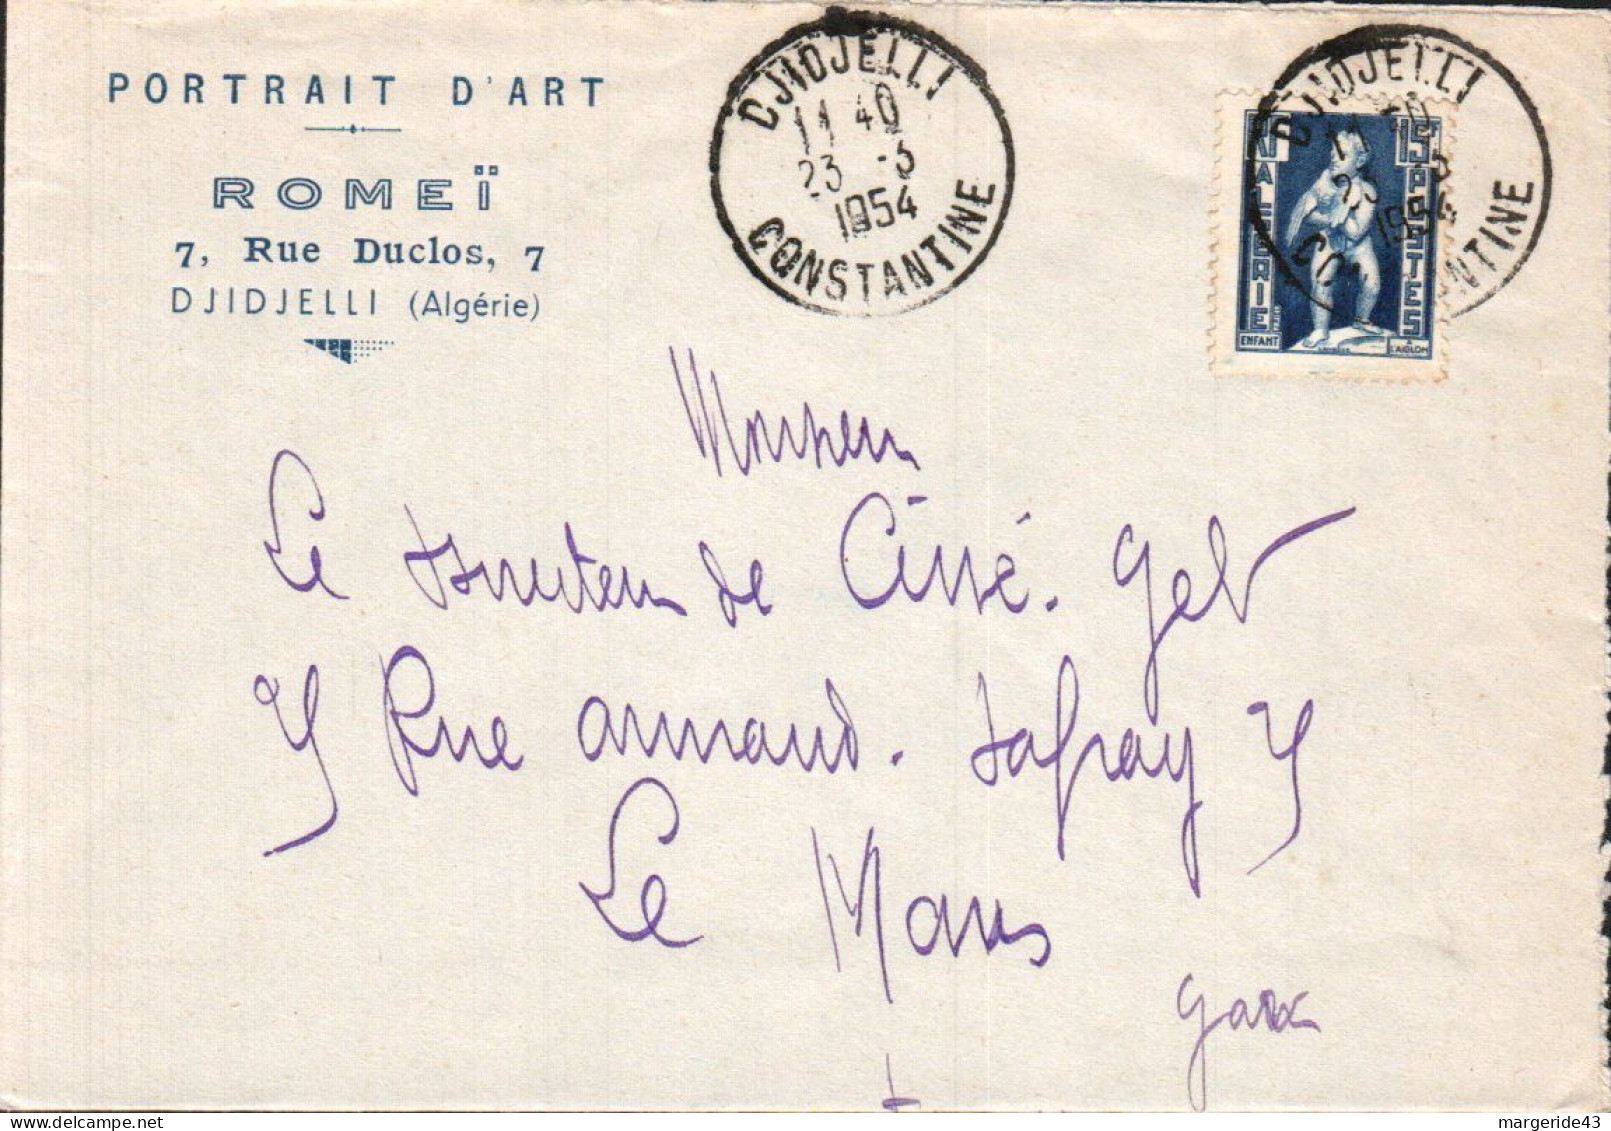 PORTRAIT D'ART
ROMEÏ
7, Rue Duclos, 7
DJIDJELLI (Algérie)
DJIDJELLI
11 40
23 -3
1954
CONSTANTINE
DJIDJELLI
11 40
23 -3
1954
CONSTANTINE
RF ALGERIE
15F POSTES
ENFANT A L'AIGLON
Monsieur
Le Directeur de Ciné.
Rue Armand.
Le Mans
margeride43